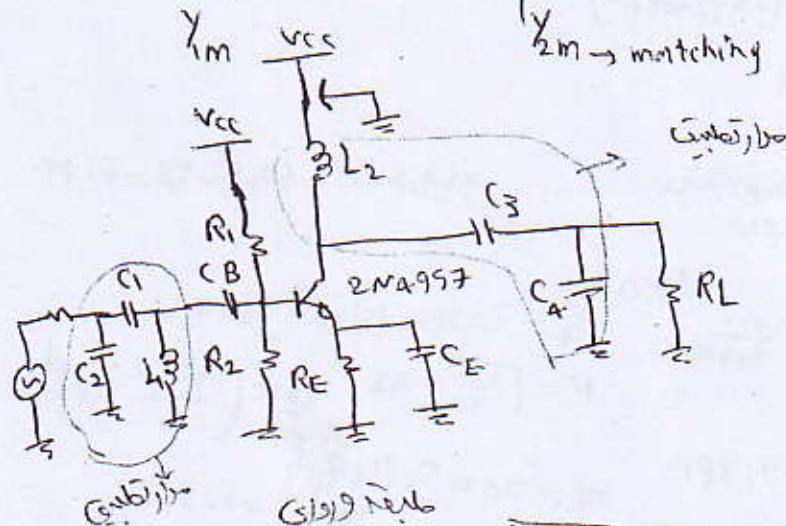 Y1m
Y2m → matching
VCC
مدار تطبیق
VCC
L2
C3
R1
C1
CB
2N4957
C4
RL
C2
L1
R2
RE
CE
مدار تطبیق
طبقه ورودی